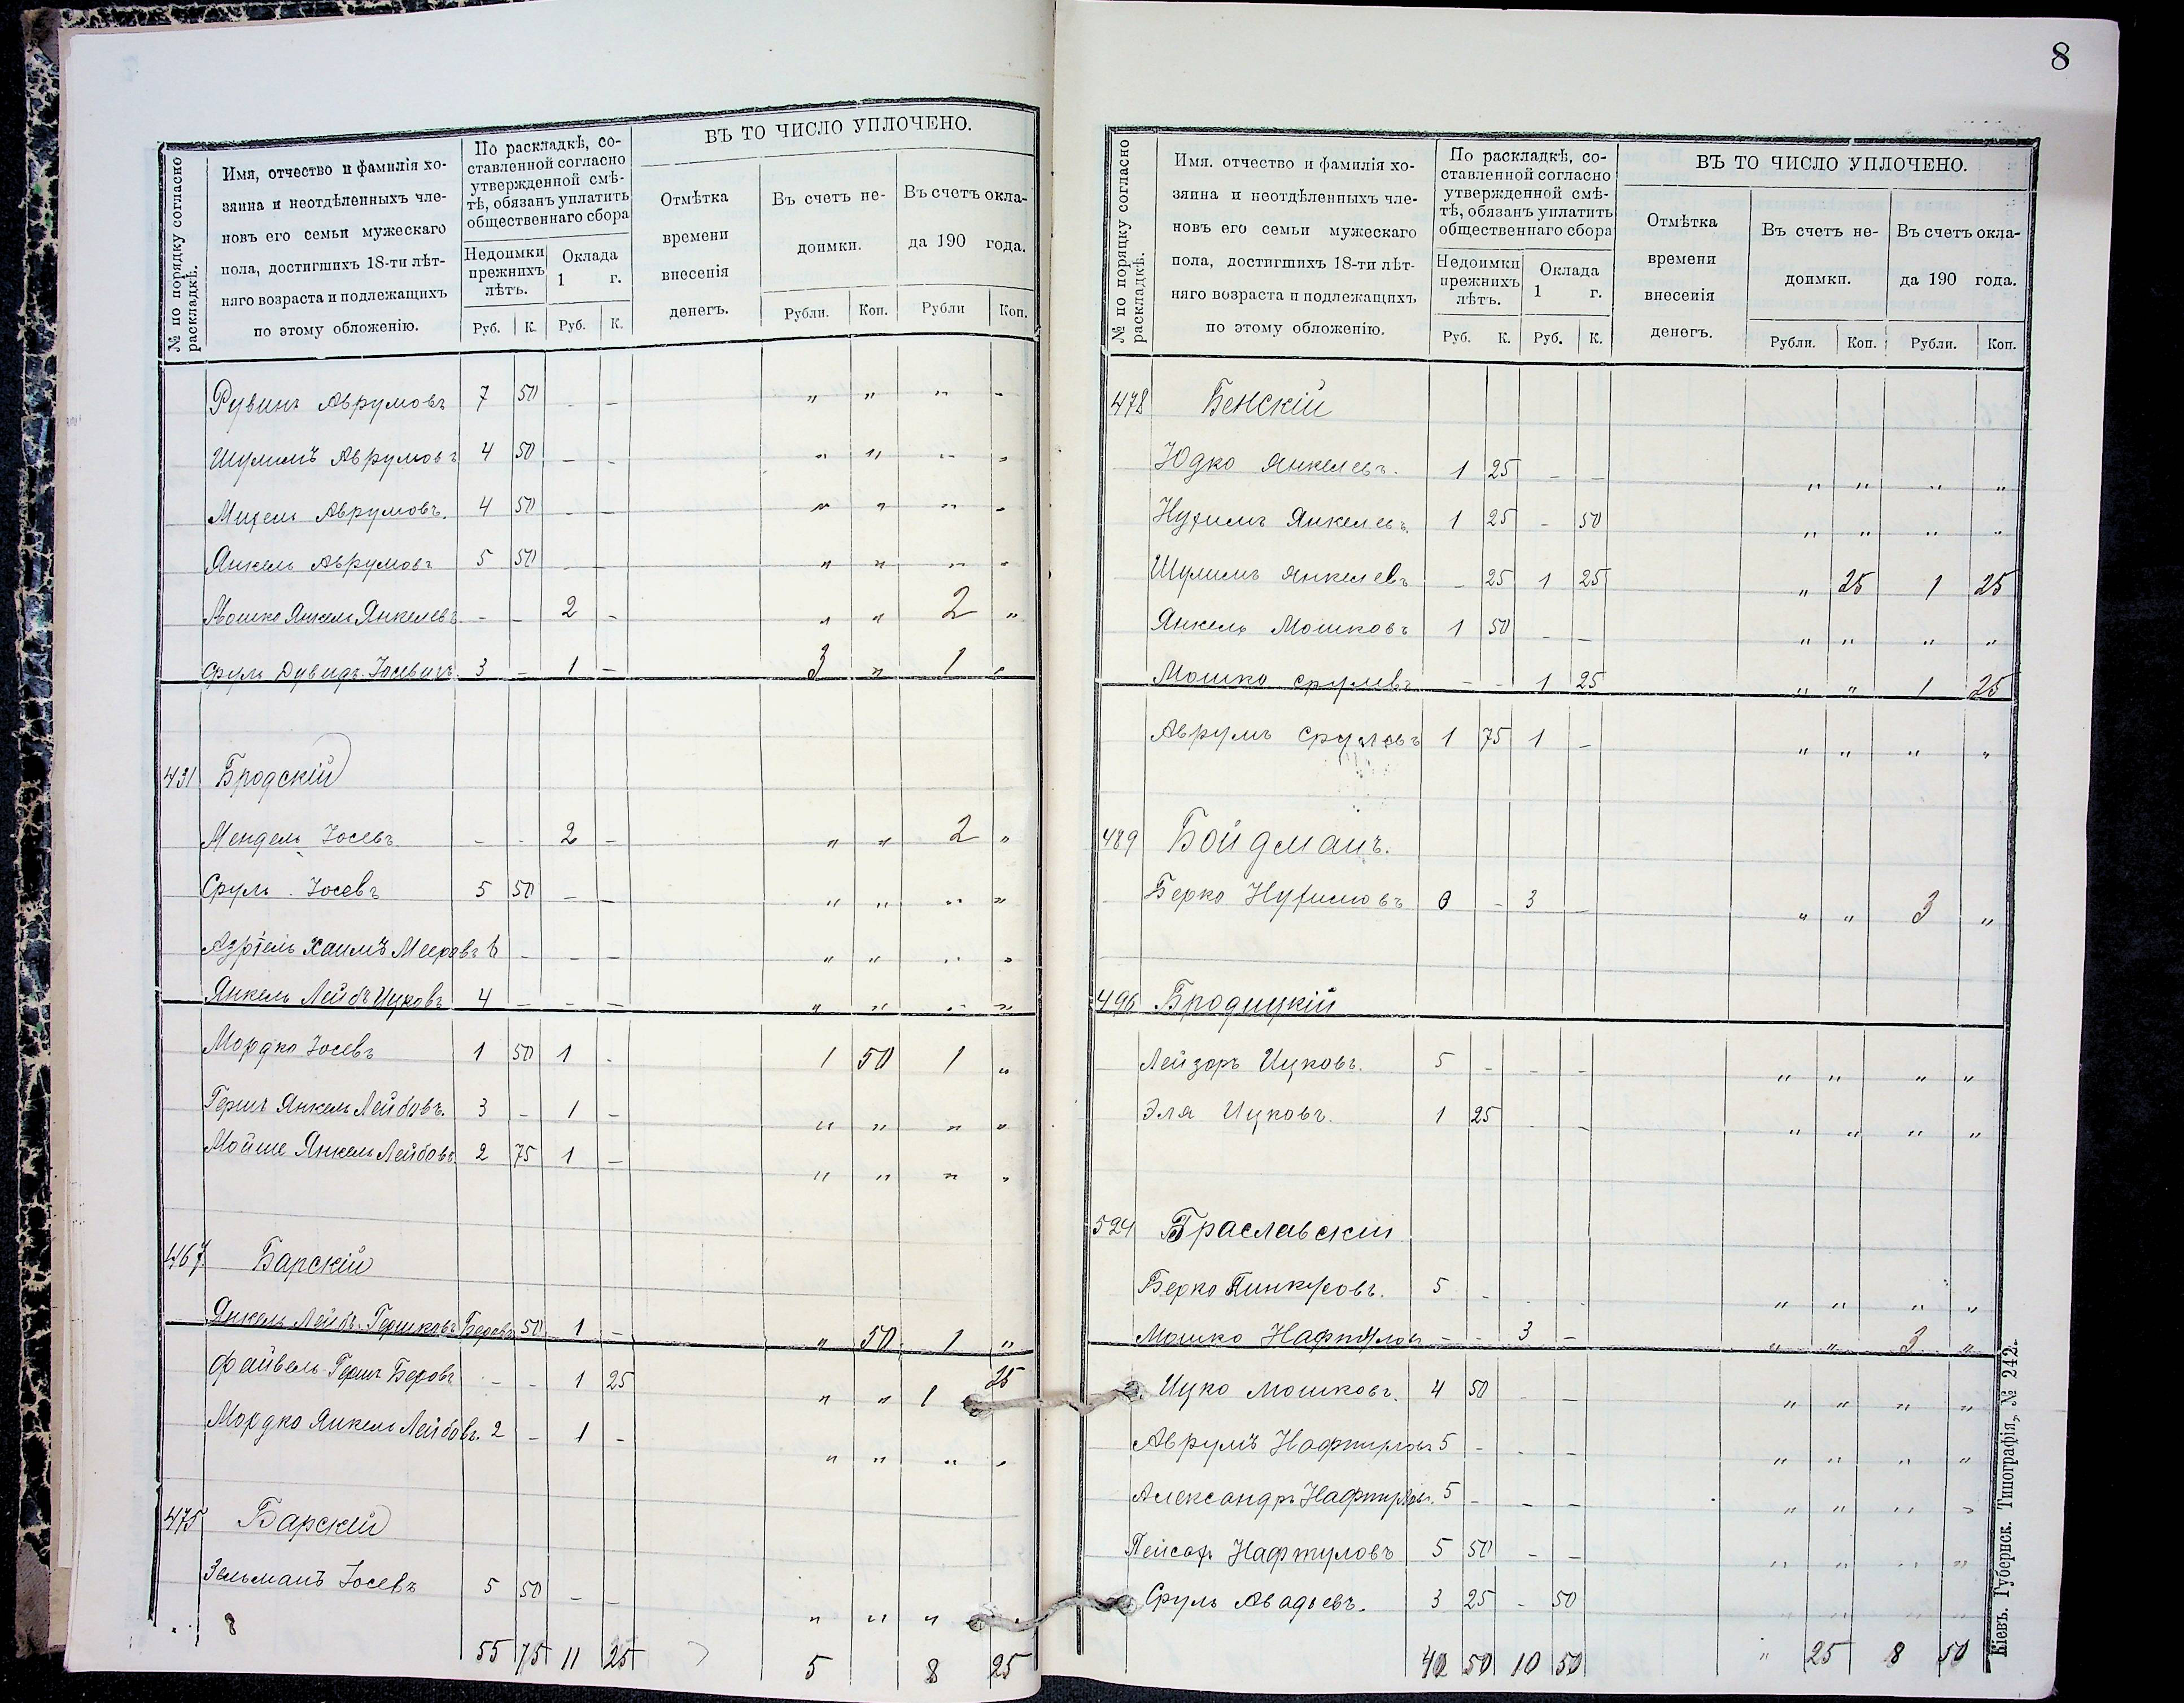 8
№ по порядку согласно раскладкѣ.
Имя, отчество и фамилія хо-
зяина и неотдѣленныхъ чле-
новъ его семьи мужескаго
пола, достигшихъ 18-ти лѣт-
няго возраста и подлежащихъ
по этому обложенію.
По раскладкѣ, со-
ставленной согласно
утвержденной смѣ-
тѣ, обязанъ уплатить
общественнаго сбора
Недоимки прежнихъ лѣтъ.
Оклада 1 г.
Руб. К. Руб. К.
ВЪ ТО ЧИСЛО УПЛОЧЕНО.
Отмѣтка
времени
внесенія
денегъ.
Въ счетъ не-
доимки.
Въ счетъ окла-
да 190 года.
Рубли. Коп. Рубли Коп.
Рувинъ Аврумовъ 7 50 - - " " " "
Шулимъ Аврумовъ 4 50 - - " " " "
Михель Аврумовъ. 4 50 - - " " " "
Янкель Аврумовъ 5 50 - - " " " "
Мошко Янкель Янкелевъ. - - 2 - " " 2 "
Сруль Дувидъ Іосевичъ 3 - 1 - 3 " 1 "
431 Бродскій
Мендель Іосевъ - - 2 - " " 2 "
Сруль Іосевъ 5 50 - - " " " "
Азріель Хаимъ Мееровъ 6 - - - " " " "
Янкель Лейбъ Ицковъ 4 - - - " " " "
Мордко Іосевъ 1 50 1 - 1 50 1 "
Гершъ Янкель Лейбовъ. 3 - 1 - " " " "
Мойше Янкель Лейбовъ. 2 75 1 - " " " "
467 Барскій
Янкель Лейбъ Гершковъ Беровъ 50 1 - " 50 1 "
Файвель Гершъ Беровъ - - 1 25 " " 1 25
Мордко Янкель Лейбовъ. 2 - 1 - " " " "
475 Барскій
Зельманъ Іосевъ 5 50 - - " " " "
8
55 75 11 25 5 8 25
№ по порядку согласно раскладкѣ.
Имя, отчество и фамилія хо-
зяина и неотдѣленныхъ чле-
новъ его семьи мужескаго
пола, достигшихъ 18-ти лѣт-
няго возраста и подлежащихъ
по этому обложенію.
По раскладкѣ, со-
ставленной согласно
утвержденной смѣ-
тѣ, обязанъ уплатить
общественнаго сбора
Недоимки прежнихъ лѣтъ.
Оклада 1 г.
Руб. К. Руб. К.
ВЪ ТО ЧИСЛО УПЛОЧЕНО.
Отмѣтка
времени
внесенія
денегъ.
Въ счетъ не-
доимки.
Въ счетъ окла-
да 190 года.
Рубли. Коп. Рубли. Коп.
478 Бенскій
Юдко Янкелевъ. 1 25 - - " " " "
Нухимъ Янкелевъ. 1 25 - 50 " " " "
Шулимъ Янкелевъ - 25 1 25 " 25 1 25
Янкель Мошковъ 1 50 - - " " " "
Мошко Срулевъ - - 1 25 " " 1 25
Аврумъ Срулевъ 1 75 1 - " " " "
489 Бойдманъ.
Берко Нухимовъ 6 - 3 - " " 3 "
496 Бродицкій
Лейзоръ Ицковъ. 5 - - - " " " "
Эля Ицковъ. 1 25 - - " " " "
524 Браславскій
Берко Пинкусовъ. 5 - - - " " " "
Мошко Нафтуловъ - - 3 - " " 3 "
Ицко Мошковъ. 4 50 - - " " " "
Аврумъ Нафтуловъ 5 - - - " " " "
Александръ Нафтуловъ. 5 - - - " " " "
Пейсахъ Нафтуловъ 5 50 - - " " " "
Сруль Авадьевъ. 3 25 - 50 " " " "
42 50 10 50 " 25 8 50
Кіевъ. Губернск. Типографія, № 242.